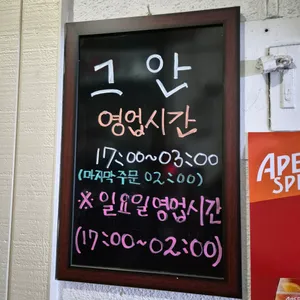 그 안
영업시간
17:00~03:00
(마지막 주문 02:00)
※ 일요일 영업시간
(17:00~02:00)
APE
SP